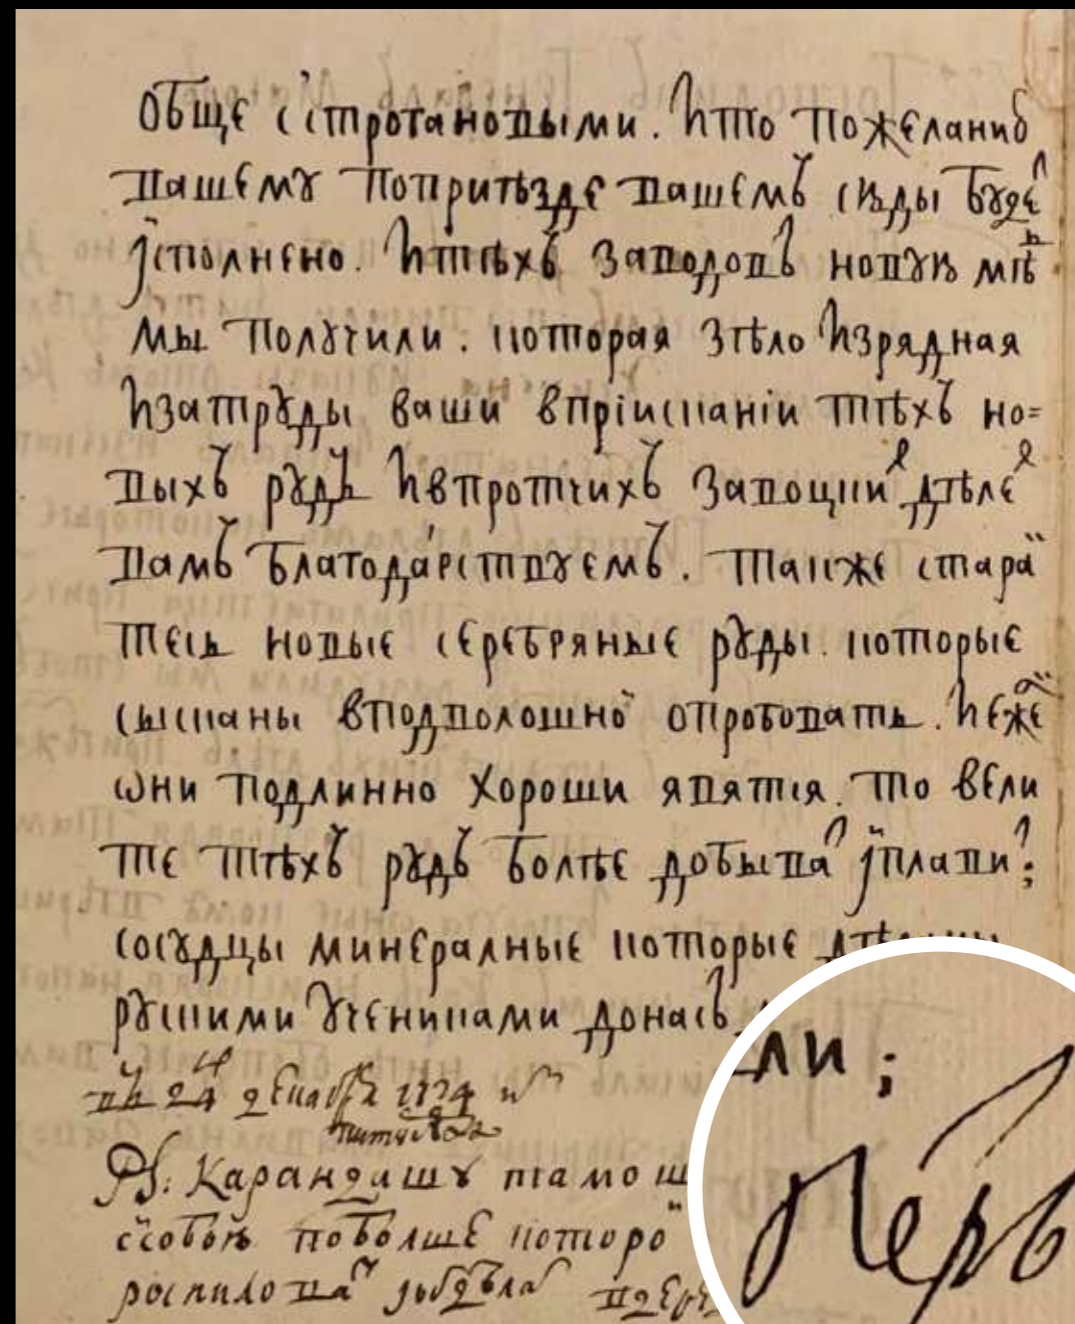 Обще сстрогановыми. Ито пожеланию
вашему поприѣзде вашемъ сюды будет
iсполнено. Итѣхъ заводовъ новую мѣдь
мы получили. которая зѣло изрядная
изатруды ваши вприісканіи тѣхъ но=
выхъ рудъ ивпротчихъ заводцких дѣлех
вамъ благодарствуемъ. также старай
тесь новые серебряные руды. которые
сысканы вподволошной опробовать. иежели
ѡни подлинно хороши явятся. то вели
те тѣхъ рудъ болѣе добыват iплавит;
сосудцы минералные которые дѣланы
рускими учениками донасъ
ли;
въ 24 декабря 1724 из
питербурха
Петръ
PS: Карандашу тамош
ссобою поболше которой
роспиловат